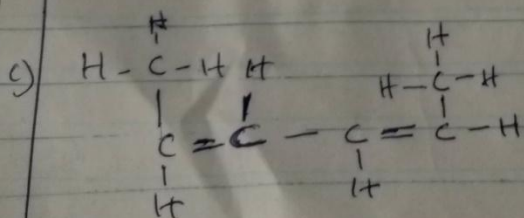 H H
c) H - C - H H H - C - H
C = C - C = C - H
H H